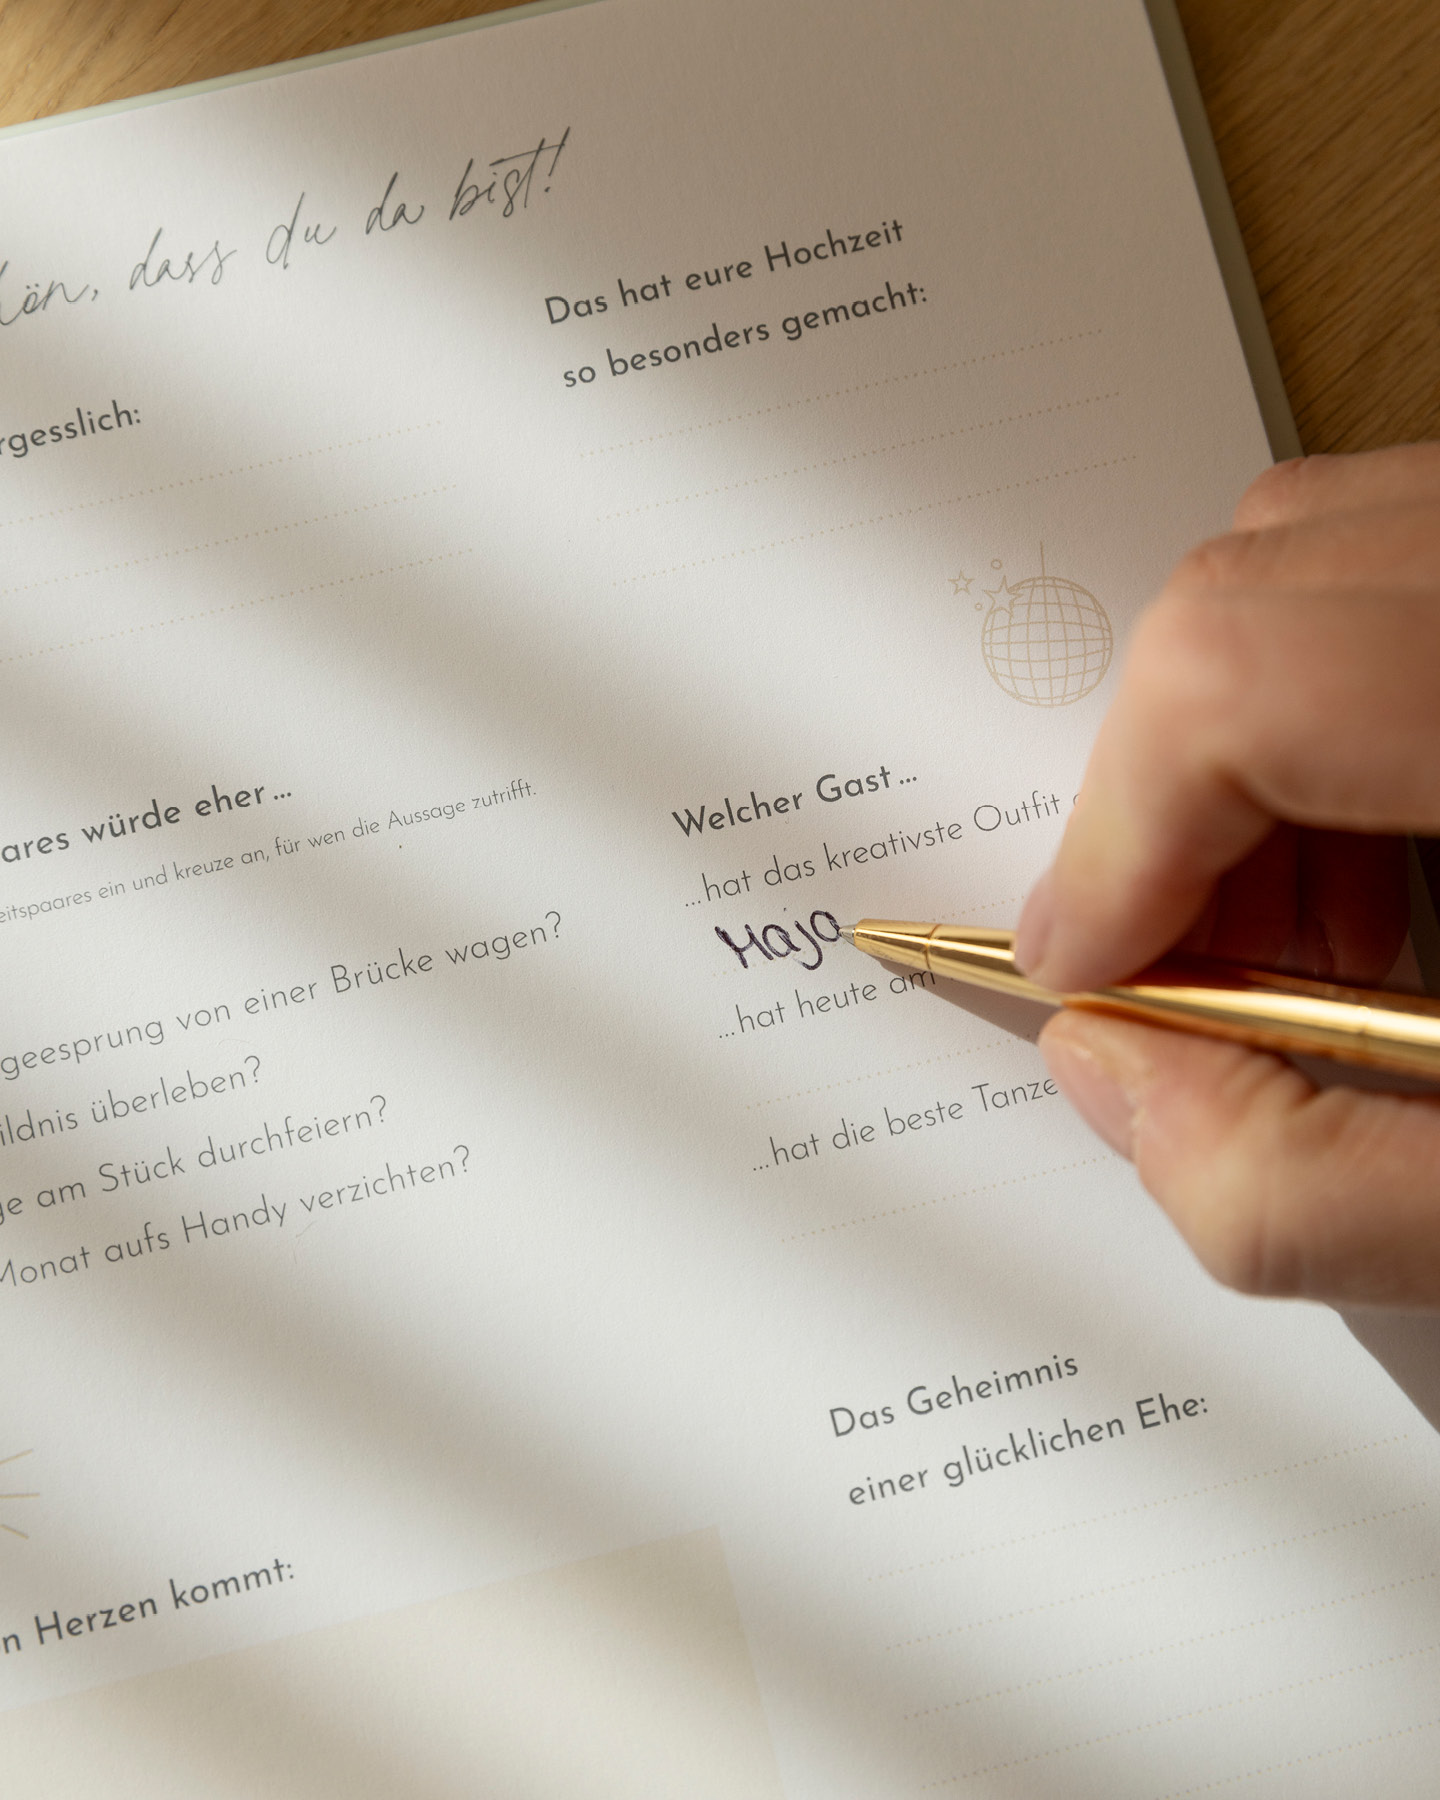 dass du da bist!
Das hat eure Hochzeit
so besonders gemacht:
würde eher ...
ein und kreuze an, für wen die Aussage zutrifft.
von einer Brücke wagen?
überleben?
am Stück durchfeiern?
Monat aufs Handy verzichten?
Welcher Gast ...
...hat das kreativste Outfit
Maja
...hat heute am
...hat die beste
Das Geheimnis
einer glücklichen Ehe:
Herzen kommt: